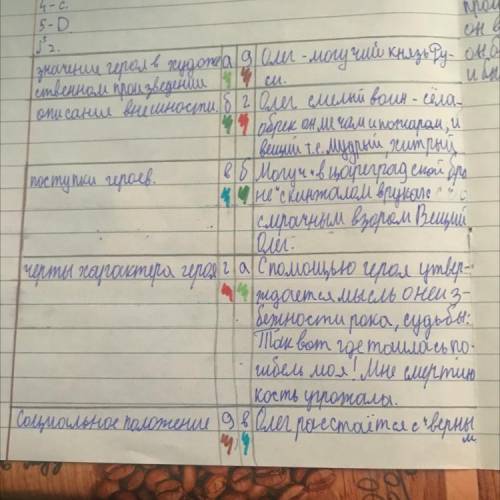 4-с.
5-D
№2.
про
он в
он о
и в
значение героя в художе а д Олег-могучий князь Ру-
ственном произведении си.
описания внешности. б г Олег смелый воин-сёла-
обрек он мечам и пожарам, и
вещий т.е. мудрый, хитрый
поступки героев. в б Могуч в цареградской бро
не с кинжалом в руках с
с мрачным взором Вещий
Олег.
черты характера героя г а С помощью героя утвер-
ждается мысль о неиз-
бежности рока, судьбы:
Так вот где таилась по-
гибель моя! Мне смертию
кость угрожала.
Социальное положение д в Олег расстаётся с верны
м